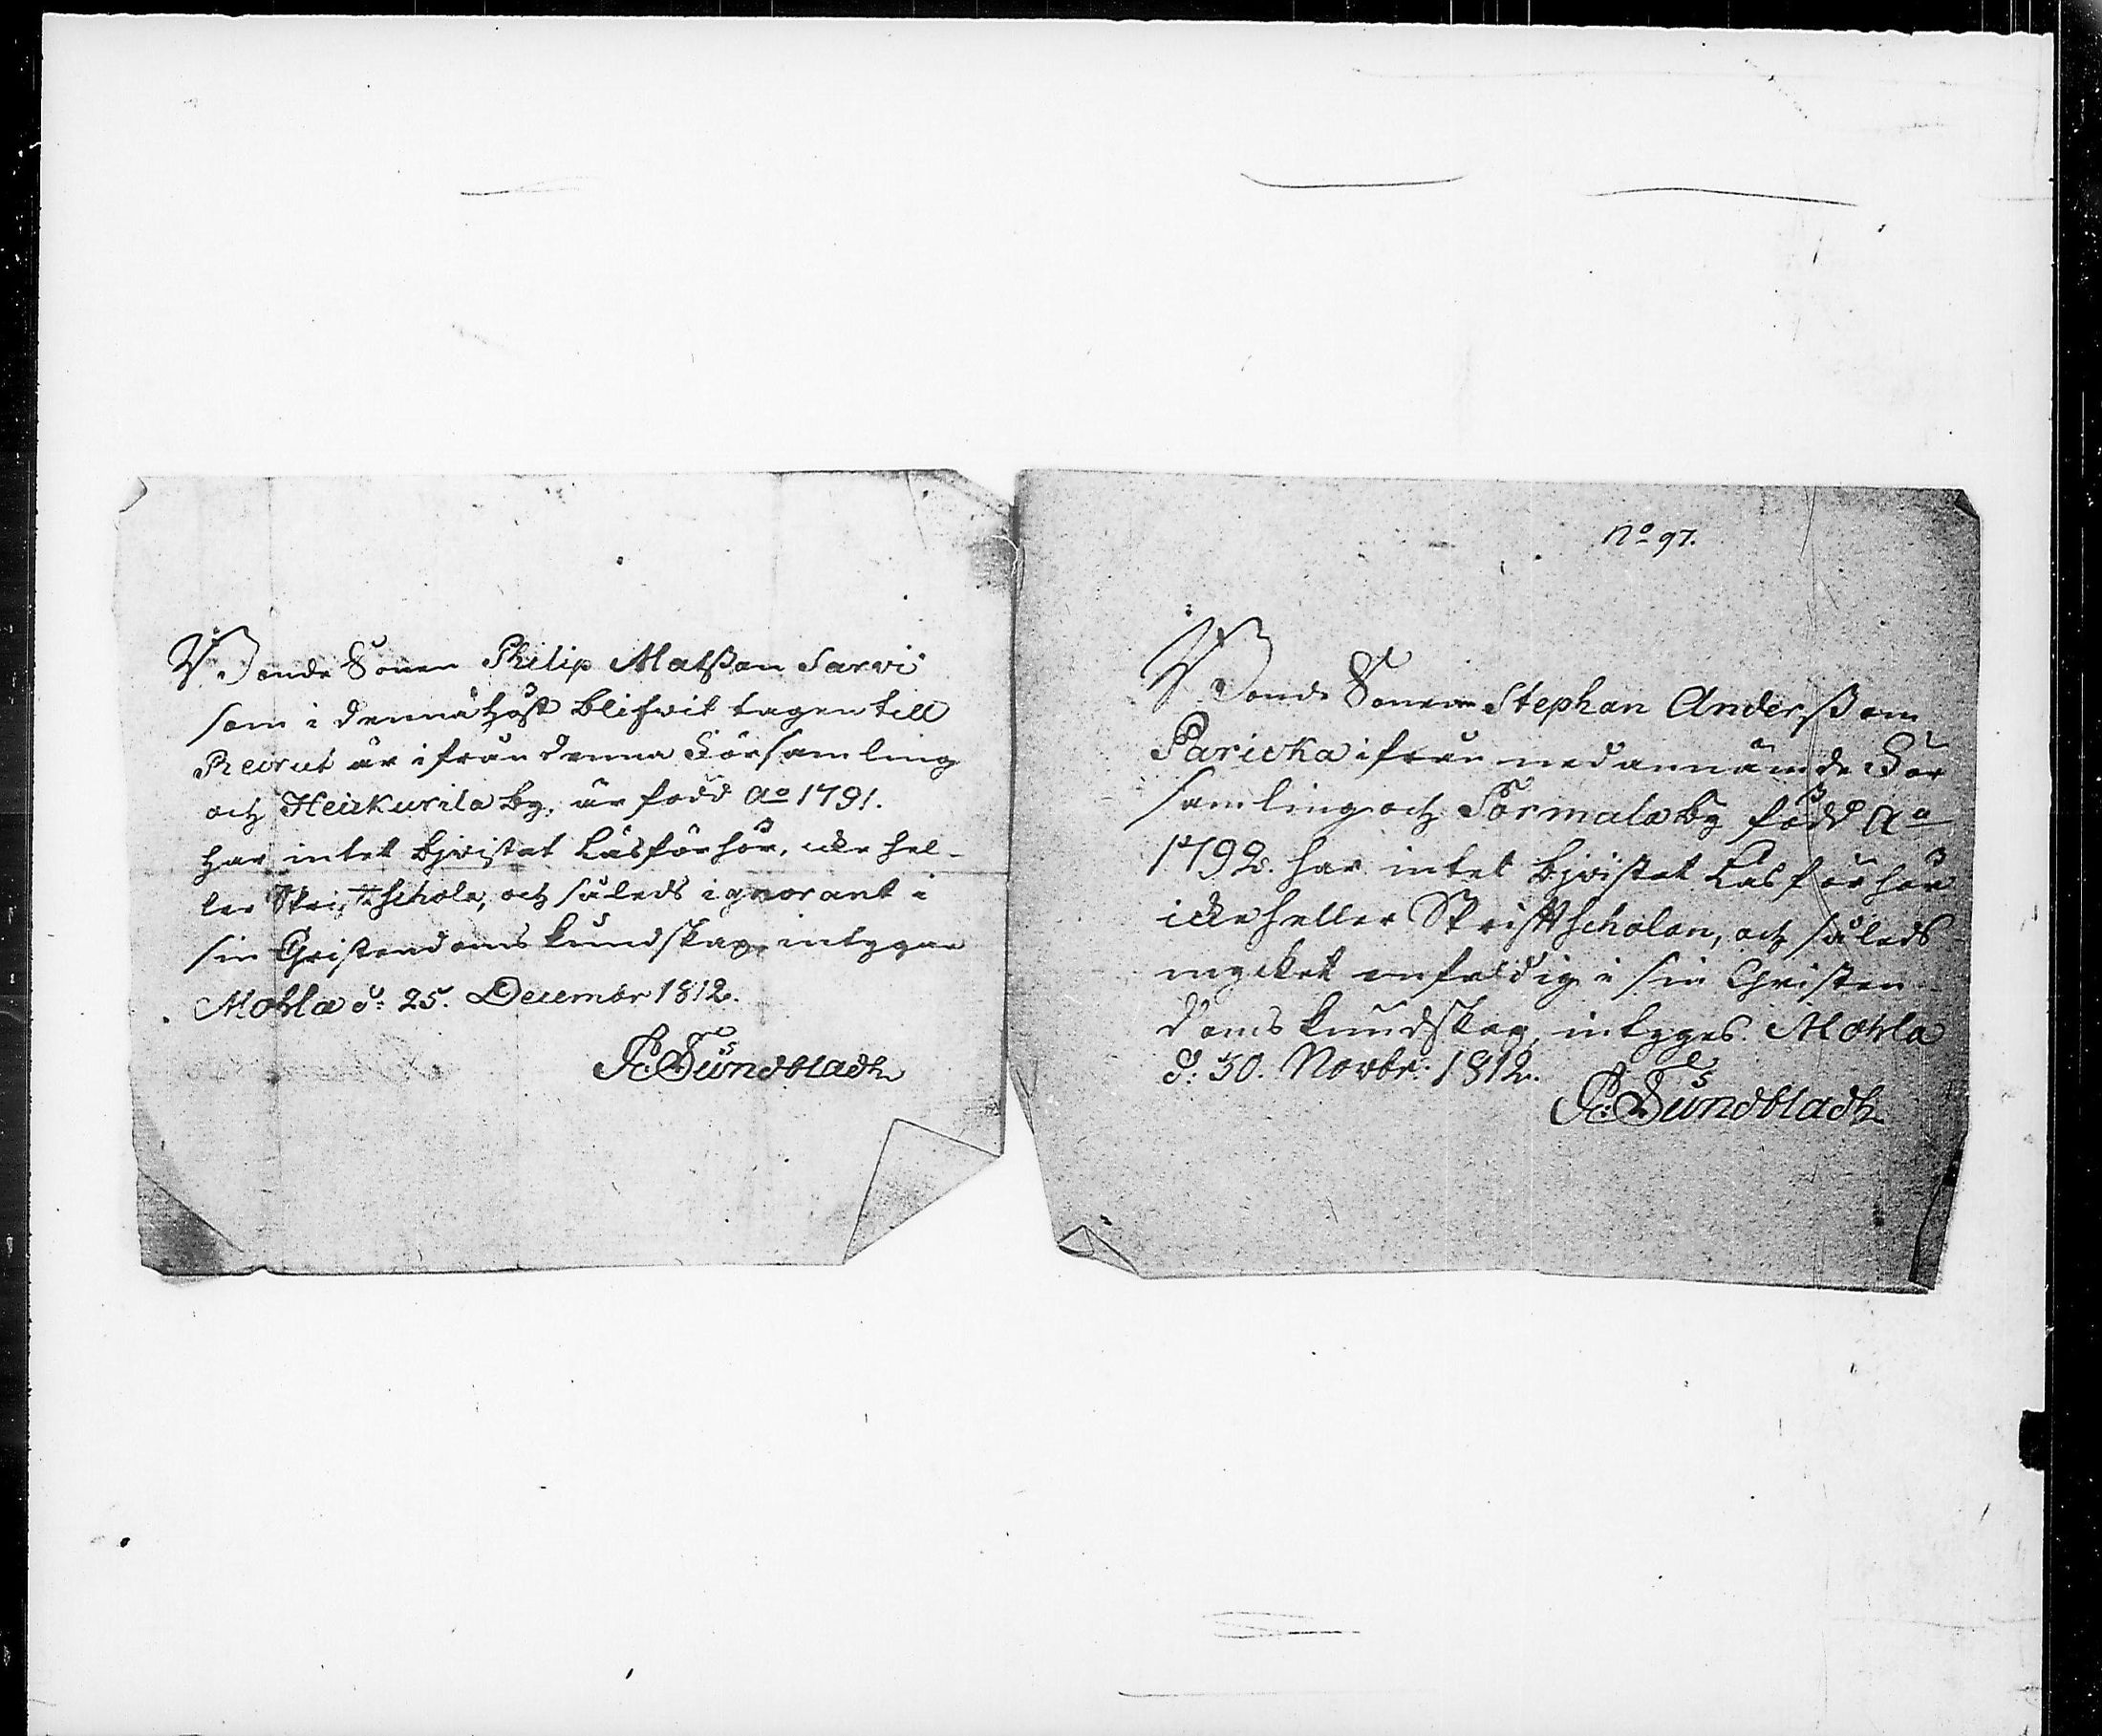 Bonde Sonen Philip Matßon Sarvi
som i denna höst blifwit tagen till
Recrut är ifrån denna Församling
och Heickurila by, är född Ao 1791.
har intet bjwistat Läsförhör, icke hel-
ler Skriftschola, och såleds ignorant i
sin Christendoms kundskap, intygar
Mohla d: 25. Decembr 1812.
Sundbladh
No 97.
Bonde Sonen Stephan Anderßon
Paricka ifrån nedannämde För
samling och Pörmala by född Ao
1792. har intet bjwistat Läsförhör
icke heller Skriftscholan, och såleds
mycket enfaldig i sin Christen
doms kundskap, intyges. Mohla
d: 30. Novbr: 1812.
Sundbladh